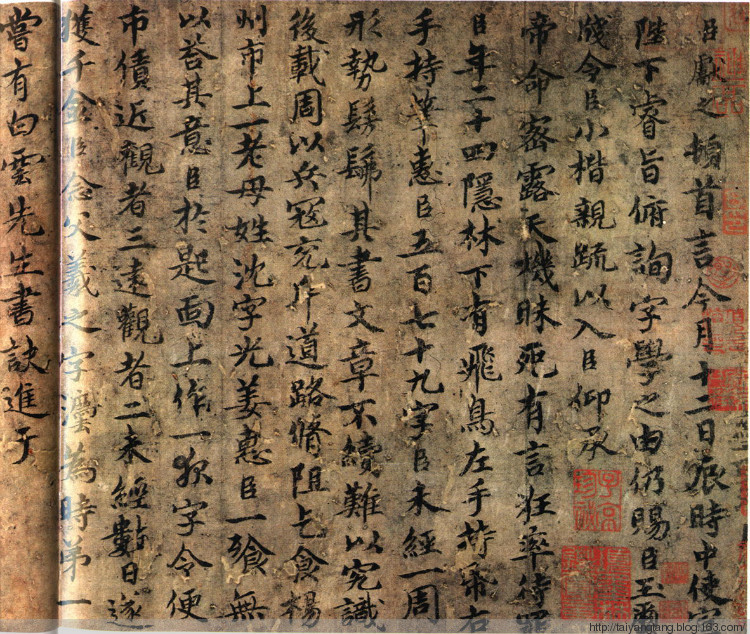 臣獻之頓首言今月十二日辰時中使宣
陛下睿旨俯詢字學之由仍賜臣玉
牋令臣小楷親疏以入臣仰承
帝命密露天機昧死有言狂率待罪
臣年二十四隱林下有飛鳥左手持帋右
手持筆惠臣五百七十九字臣未經一周
形勢髣髴其書文章不續難以究識
後載周以兵寇充斥道路脩阻乞食楊
州市上一老母姓沈字光姜惠臣一飡無
以荅其意臣於匙面上作一夜字令便
市債近觀者三遠觀者二未經數日遂
獲千金臣念父羲之字灋為時第一
嘗有白雲先生書訣進于
http://taiyangtang.blog.163.com